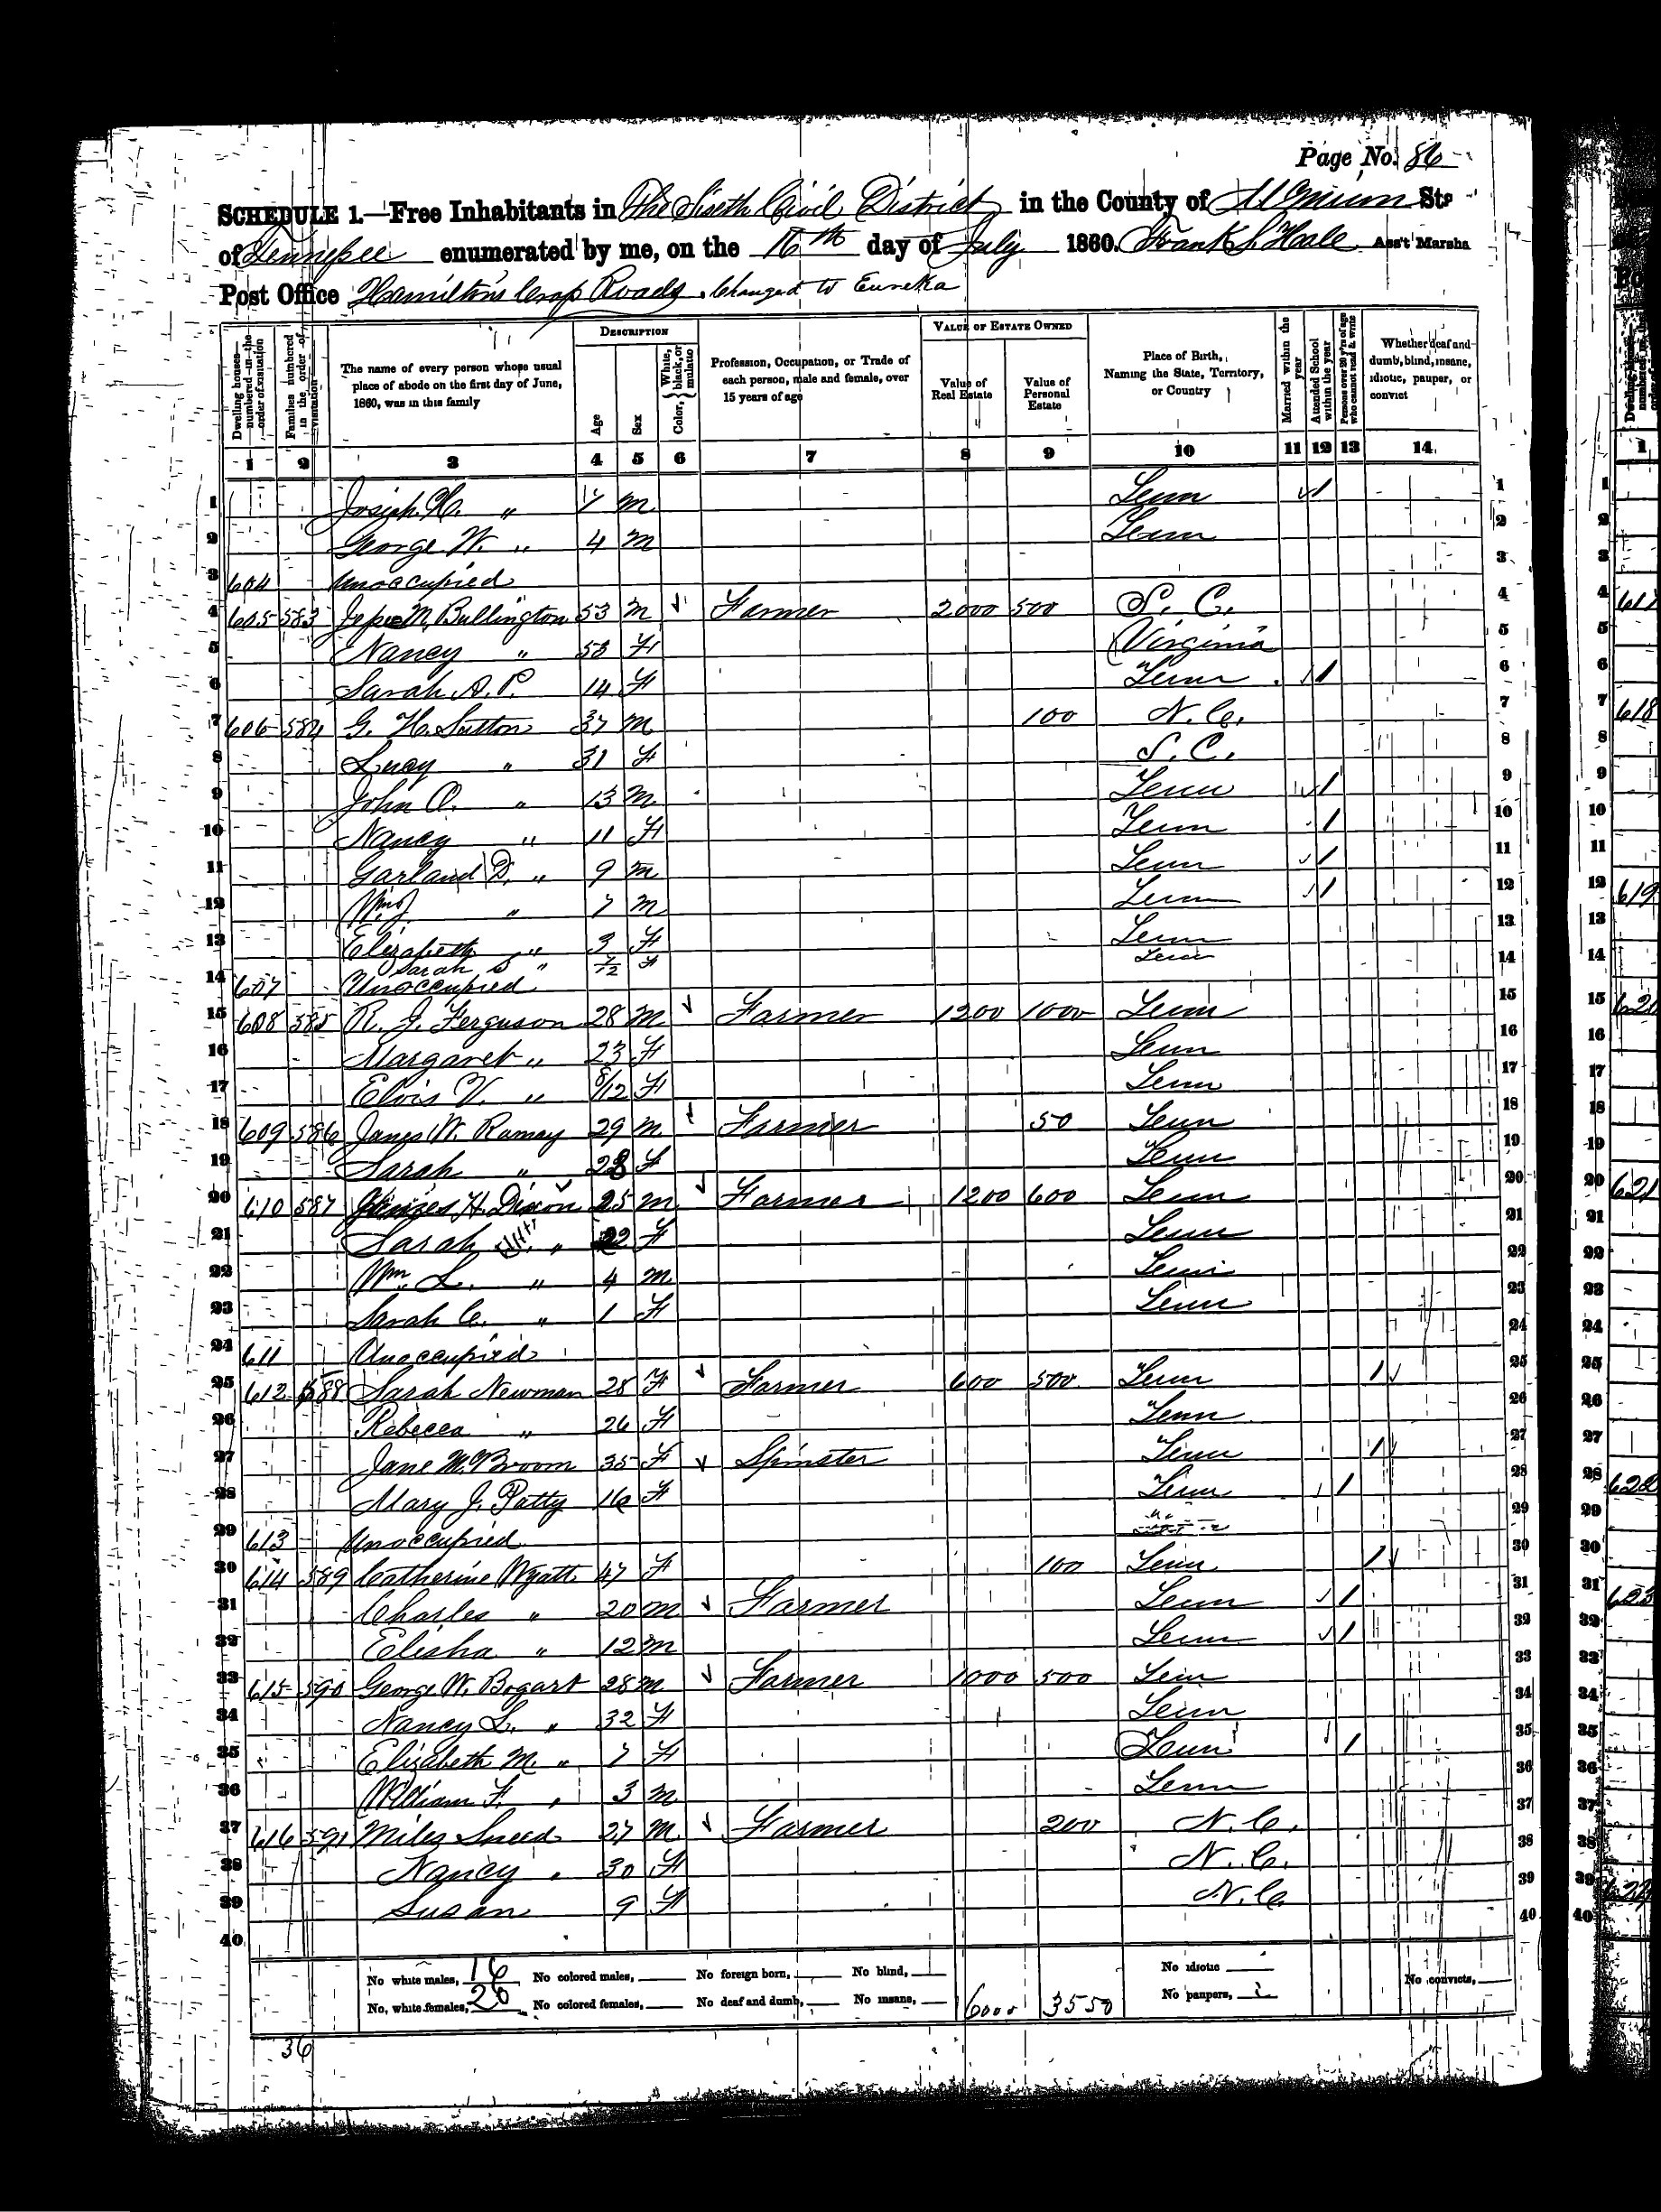 Page No. 86
SCHEDULE 1.—Free Inhabitants in The Sixth Civil District in the County of McMinn State
of Tennessee enumerated by me, on the 16th day of July 1860. Frank S. Hale Ass't Marsha
Post Office Hamilton's Cross Roads, Changed to Eureka
Dwelling houses—numbered in the order of visitation
Families numbered in the order of visitation
The name of every person whose usual place of abode on the first day of June, 1860, was in this family
DESCRIPTION
Age
Sex
Color, White, black, or mulatto
Profession, Occupation, or Trade of each person, male and female, over 15 years of age
VALUE OF ESTATE OWNED
Value of Real Estate
Value of Personal Estate
Place of Birth, Naming the State, Territory, or Country
Married within the year
Attended School within the year
Persons over 20 y'rs of age who cannot read & write
Whether deaf and dumb, blind, insane, idiotic, pauper, or convict
1 2 3 4 5 6 7 8 9 10 11 12 13 14
1 Josiah H. " 7 m Tenn / 1
2 George W. " 4 m Tenn 2
3 604 Unoccupied 3
4 605 583 Jesse M. Bullington 53 m Farmer 2000 500 S. C. 4
5 Nancy " 53 F Virginia 5
6 Sarah A. P. 14 F Tenn / 6
7 606 584 G. H. Sutton 37 m 100 N. C. 7
8 Lucy " 31 F S. C. 8
9 John O. " 13 m Tenn / 9
10 Nancy " 11 F Tenn / 10
11 Garland D. " 9 m Tenn / 11
12 Wm J. " 7 m Tenn / 12
13 Elizabeth " 3 F Tenn 13
Sarah S " 7/12 F Tenn
14 607 Unoccupied 14
15 608 585 R. J. Ferguson 28 m Farmer 1200 1000 Tenn 15
16 Margaret " 23 F Tenn 16
17 Elvis V. " 8/12 F Tenn 17
18 609 586 James W. Ramay 29 m Farmer 50 Tenn 18
19 Sarah " 28 F Tenn 19
20 610 587 H. Dixon 25 m Farmer 1200 600 Tenn 20
21 Sarah " 22 F Tenn 21
22 Wm. L. " 4 m Tenn 22
23 Sarah C. " 1 F Tenn 23
24 611 Unoccupied 24
25 612 588 Sarah Newman 28 F Farmer 600 500 Tenn / 25
26 Rebecca " 26 F Tenn 26
27 Jane McBroom 35 F Spinster Tenn / 27
28 Mary J. Patty 16 F Tenn / 28
29 613 Unoccupied 29
30 614 589 Catherine Wyatt 47 F 100 Tenn / 30
31 Charles " 20 m Farmer Tenn / 31
32 Elisha " 12 m Tenn / 32
33 615 590 George W. Bogart 28 m Farmer 1000 500 Tenn 33
34 Nancy L. " 32 F Tenn 34
35 Elizabeth M. " 7 F Tenn / 35
36 William F. " 3 m Tenn 36
37 616 591 Miles Sneed 27 m Farmer 200 N. C. 37
38 Nancy " 30 F N. C. 38
39 Susan 9 F N. C. 39
40 40
No white males, 16 No colored males, No foreign born, No blind, No idiotic No convicts,
No. white females, 20 No colored females, No deaf and dumb, No insane, 6000 3550 No paupers,
36